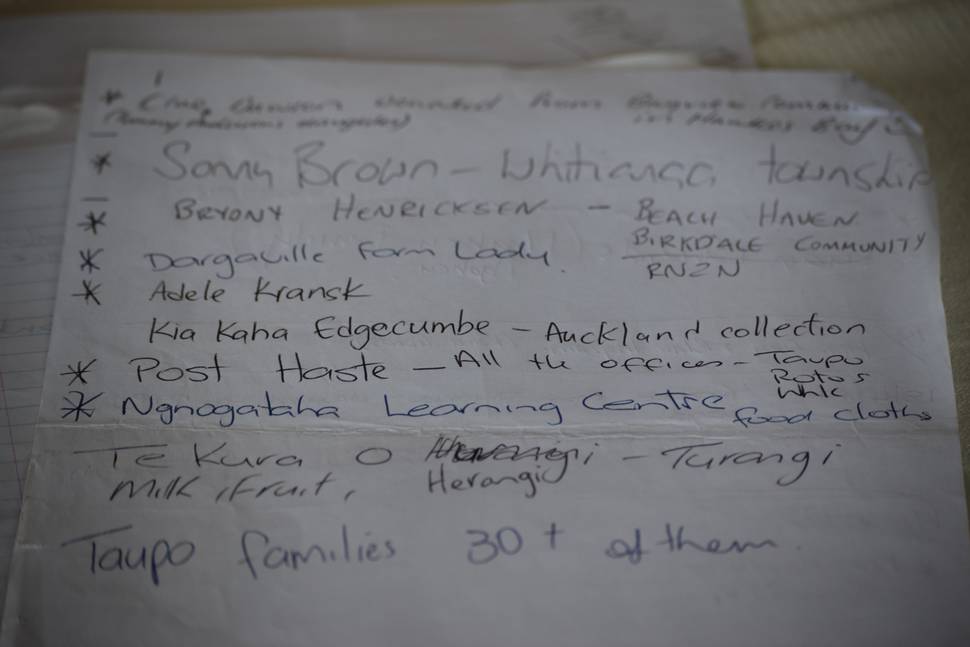 * from
* Sonny Brown - Whitianga township
* BRYONY HENRICKSEN - BEACH HAVEN
BIRKDALE COMMUNITY
RNZN
* Dargaville Farm Lady.
* Adele Kransk
Kia Kaha Edgecumbe - Auckland collection
* Post Haste - All the offices - Taupo
Rotu's
Whk
* Ngnogataha Learning Centre food cloths
Te Kura O Herangi - Turangi
Milk, Fruit,
Taupo families 30+ of them.